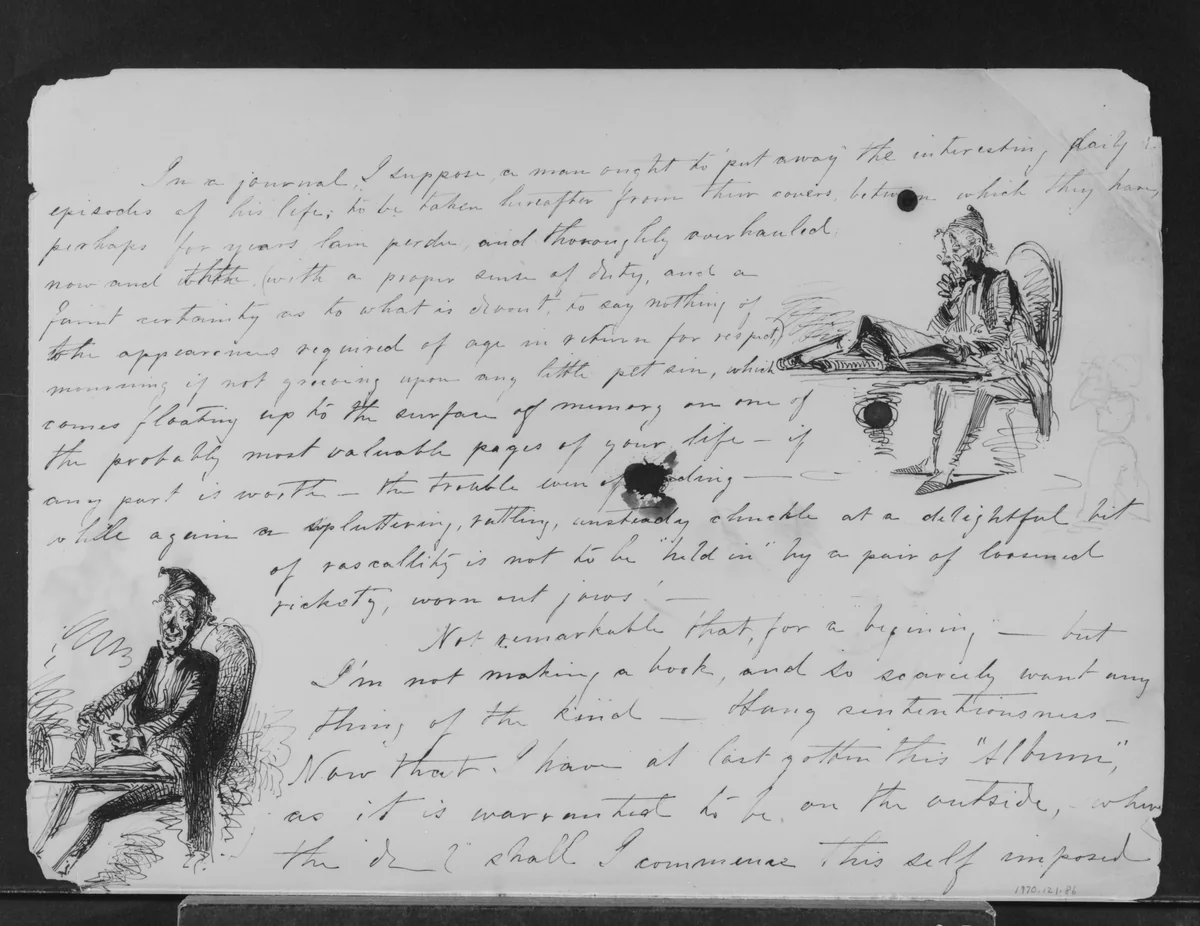 In a journal, I suppose, a man ought to "put away" the interesting daily
episodes of his life; to be taken hereafter from their covers, between which they have,
perhaps for years lain perdu, and thoroughly overhauled.
now and (with a proper sense of duty, and a
faint certainty as to what is devout, to say nothing of
the appearances required of age in return for respect)
mourning if not grieving upon any little pet sin, which
comes floating up to the surface of memory on one of
the probably most valuable pages of your life — if
any part is worth — the trouble even of —
while again a spluttering, rattling, unsteady chuckle at a delightful bit
of rascallity is not to be "held in" by a pair of loosened
rickety, worn out jaws! —
Not remarkable that, for a "begining" — but
I'm not making a book, and so scarcely want any
thing of the kind — Hang sententiousness —
Now that I have at last gotten this "Album",
as it is warranted to be on the outside, — where
the d—l shall I commence this self imposed
1970.121.86